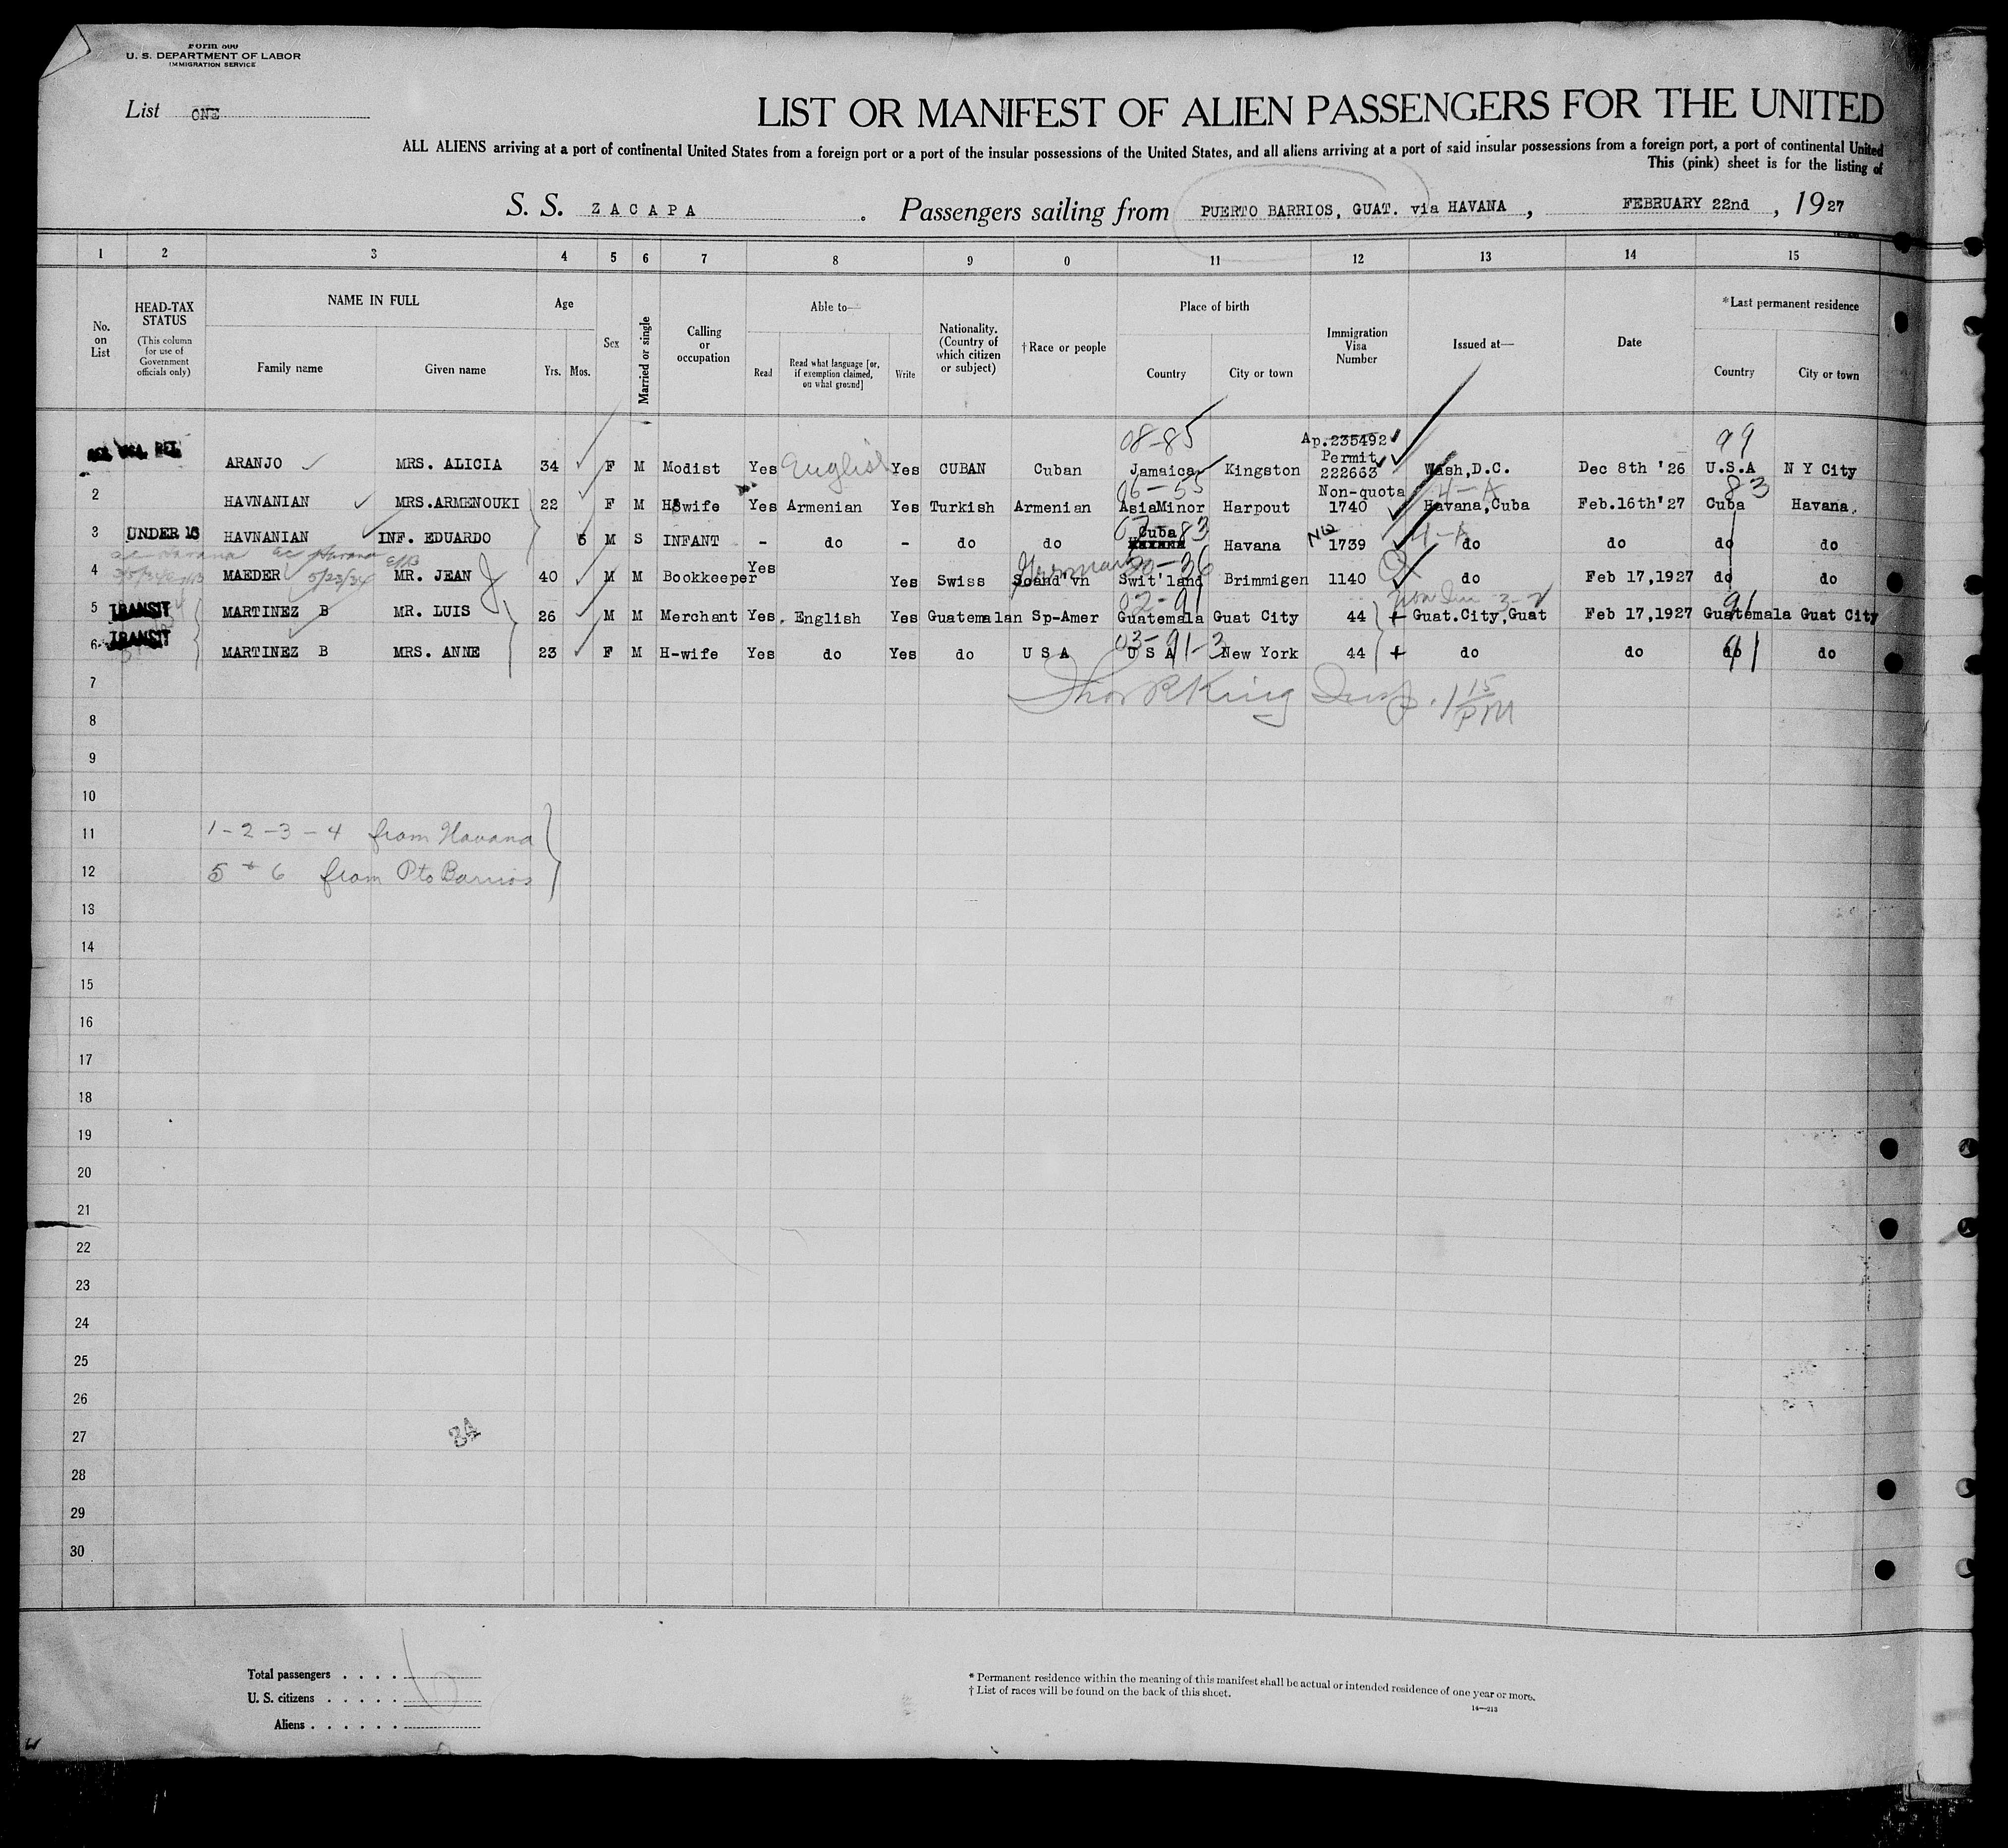 Form 500
U. S. DEPARTMENT OF LABOR
IMMIGRATION SERVICE
List ONE
LIST OR MANIFEST OF ALIEN PASSENGERS FOR THE UNITED
ALL ALIENS arriving at a port of continental United States from a foreign port or a port of the insular possessions of the United States, and all aliens arriving at a port of said insular possessions from a foreign port, a port of continental United
This (pink) sheet is for the listing of
S. S. ZACAPA . Passengers sailing from PUERTO BARRIOS, GUAT. via HAVANA , FEBRUARY 22nd , 1927
1 2 3 4 5 6 7 8 9 0 11 12 13 14 15
No. on List
HEAD-TAX STATUS (This column for use of Government officials only)
NAME IN FULL
Family name Given name
Age
Yrs. Mos.
Sex
Married or single
Calling or occupation
Able to—
Read Read what language [or, if exemption claimed, on what ground] Write
Nationality. (Country of which citizen or subject)
† Race or people
Place of birth
Country City or town
Immigration Visa Number
Issued at—
Date
*Last permanent residence
Country City or town
08-85 Ap.235492 99
Permit
ARANJO MRS. ALICIA 34 F M Modist Yes English Yes CUBAN Cuban Jamaica Kingston 222663 Wash,D.C. Dec 8th '26 U.S.A N Y City
06-55 Non-quota 4-A 83
2 HAVNANIAN MRS.ARMENOUKI 22 F M HSwife Yes Armenian Yes Turkish Armenian AsiaMinor Harpout 1740 Havana,Cuba Feb.16th'27 Cuba Havana.
Cuba NQ 4-A
3 UNDER 16 HAVNANIAN INF. EDUARDO 5 M S INFANT - do - do do Havana Havana 1739 do do do do
ac Havana 5/23/34
German 20-36 Q
4 MAEDER MR. JEAN 40 M M Bookkeeper Yes Yes Swiss Scand'vn Swit'land Brimmigen 1140 do Feb 17,1927 do do
02-91 Non Im 3-2 91
5 TRANSIT MARTINEZ B MR. LUIS 26 M M Merchant Yes. English Yes Guatemalan Sp-Amer Guatemala Guat City 44 Guat.City,Guat Feb 17,1927 Guatemala Guat City
03-91-3 91
6 TRANSIT MARTINEZ B MRS. ANNE 23 F M H-wife Yes do Yes do U S A U S A New York 44 do do do do
7 Thos R King Insp. 1 15 PM
8
9
10
11 1-2-3-4 from Havana
12 5 + 6 from Pto Barrios
13
14
15
16
17
18
19
20
21
22
23
24
25
26
27
34
28
29
30
Total passengers . . . . 6
U. S. citizens . . . . .
Aliens . . . . . .
* Permanent residence within the meaning of this manifest shall be actual or intended residence of one year or more.
† List of races will be found on the back of this sheet.
14—213